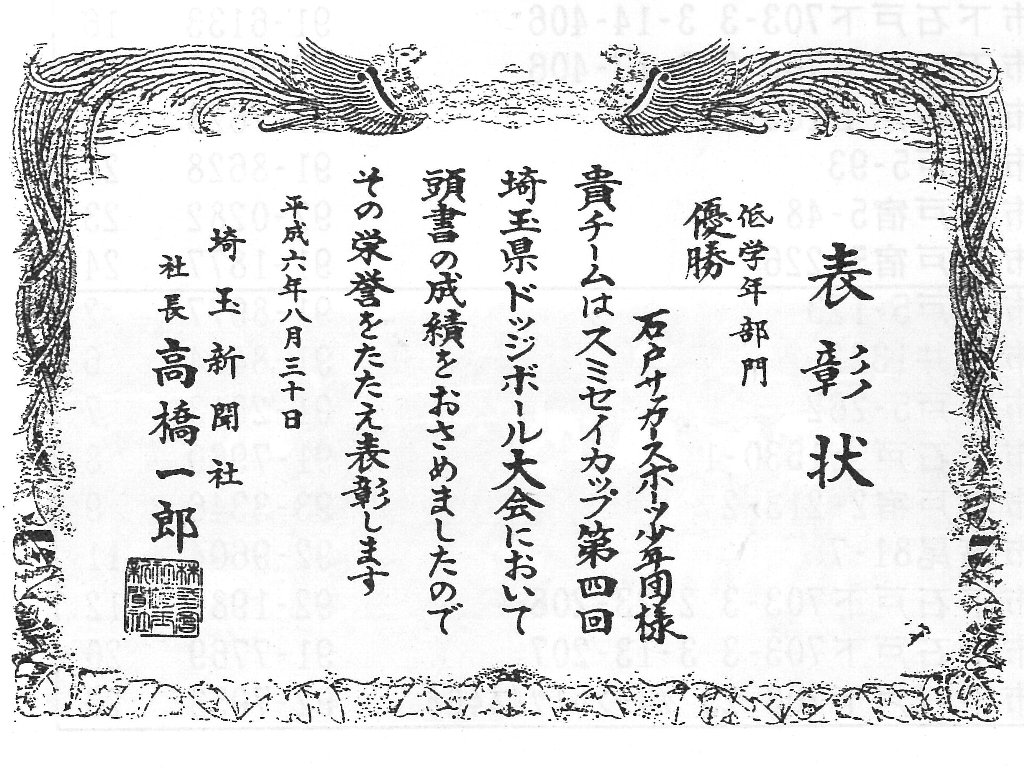 表彰状
低学年部門
優勝
石戸サッカースポーツ少年団様
貴チームはスミセイカップ第四回
埼玉県ドッジボール大会において
頭書の成績をおさめましたので
その栄誉をたたえ表彰します
平成六年八月三十日
埼玉新聞社
社長 高橋一郎